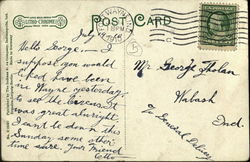 POST CARD
July
Hello George:— I
suppose you would
liked have been
in Wayne yesterday
to see the circus. It
was great alright.
I can't be down this
Sunday some other
time sure. Your friend
Otto
Mr George Tholan
Wabash
Ind.
To General Delivery